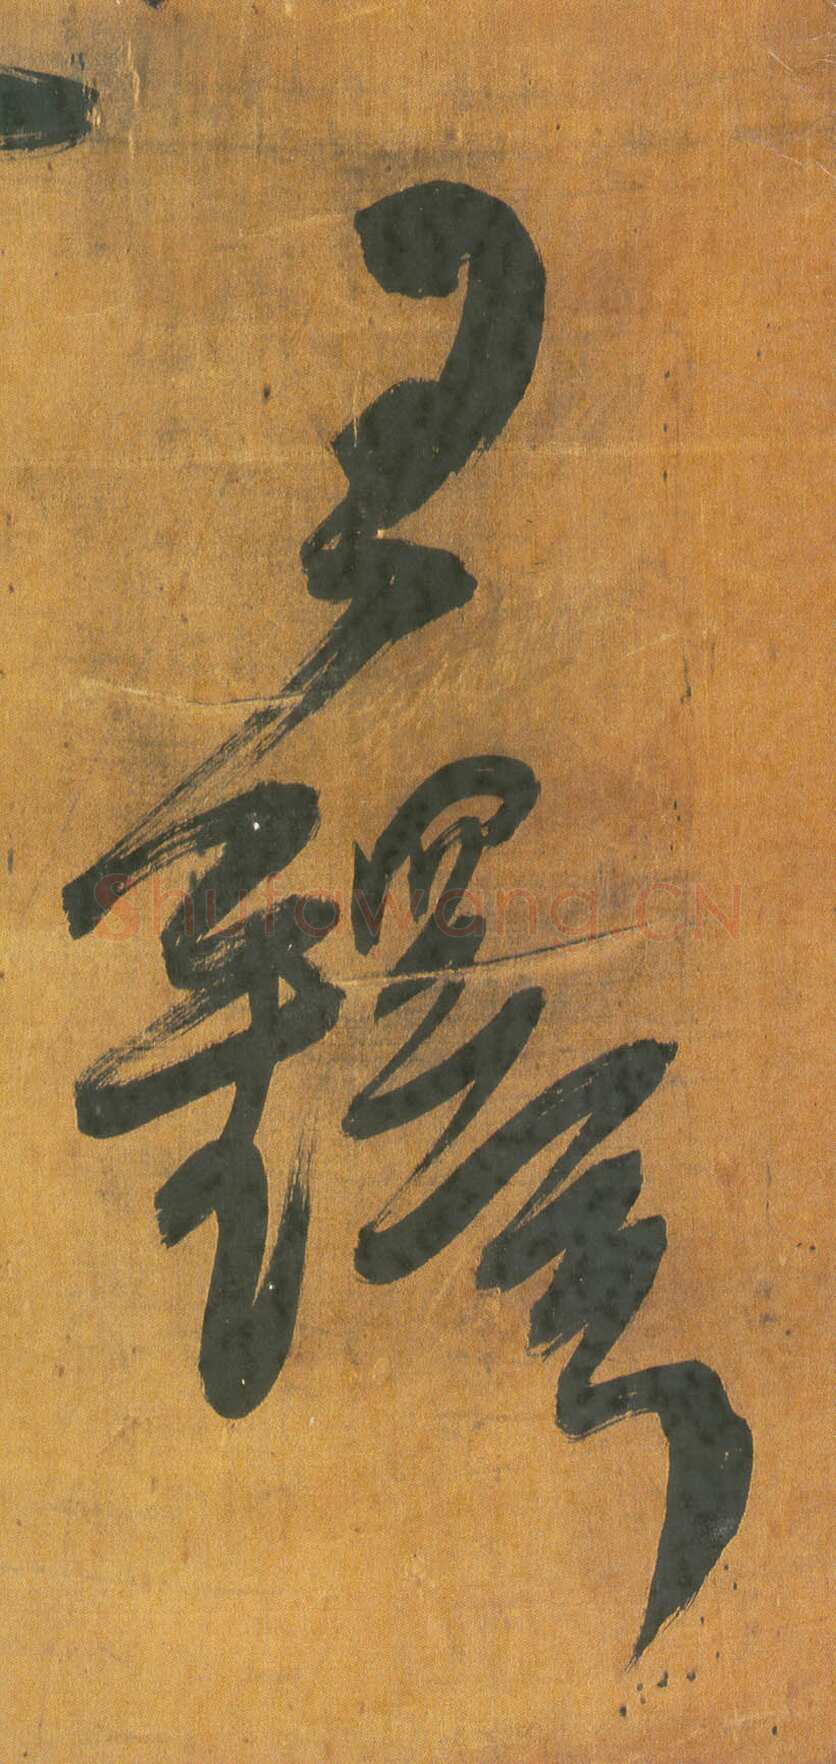 王鐸
Shufawang.CN